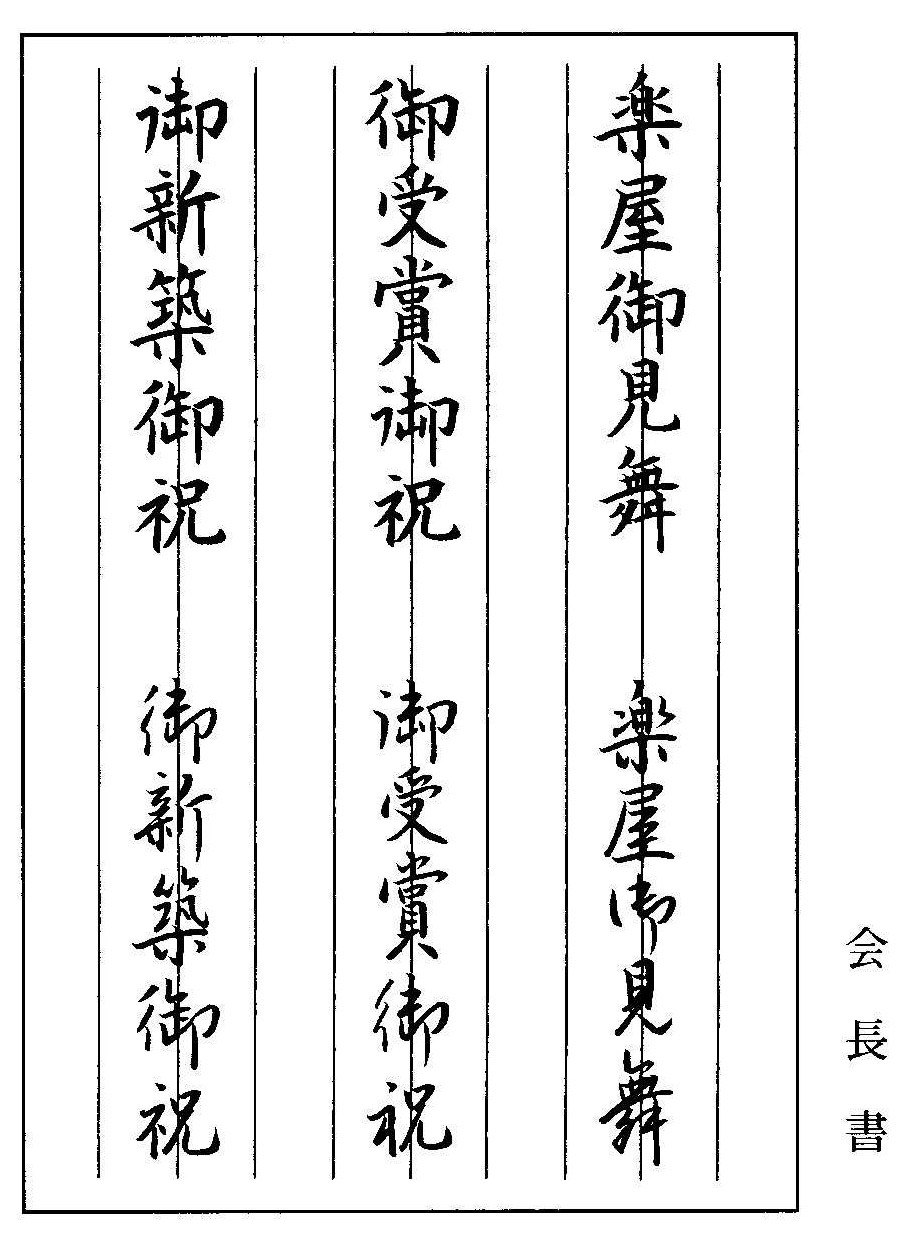 楽屋御見舞 楽屋御見舞
御受賞御祝 御受賞御祝
御新築御祝 御新築御祝
会長書